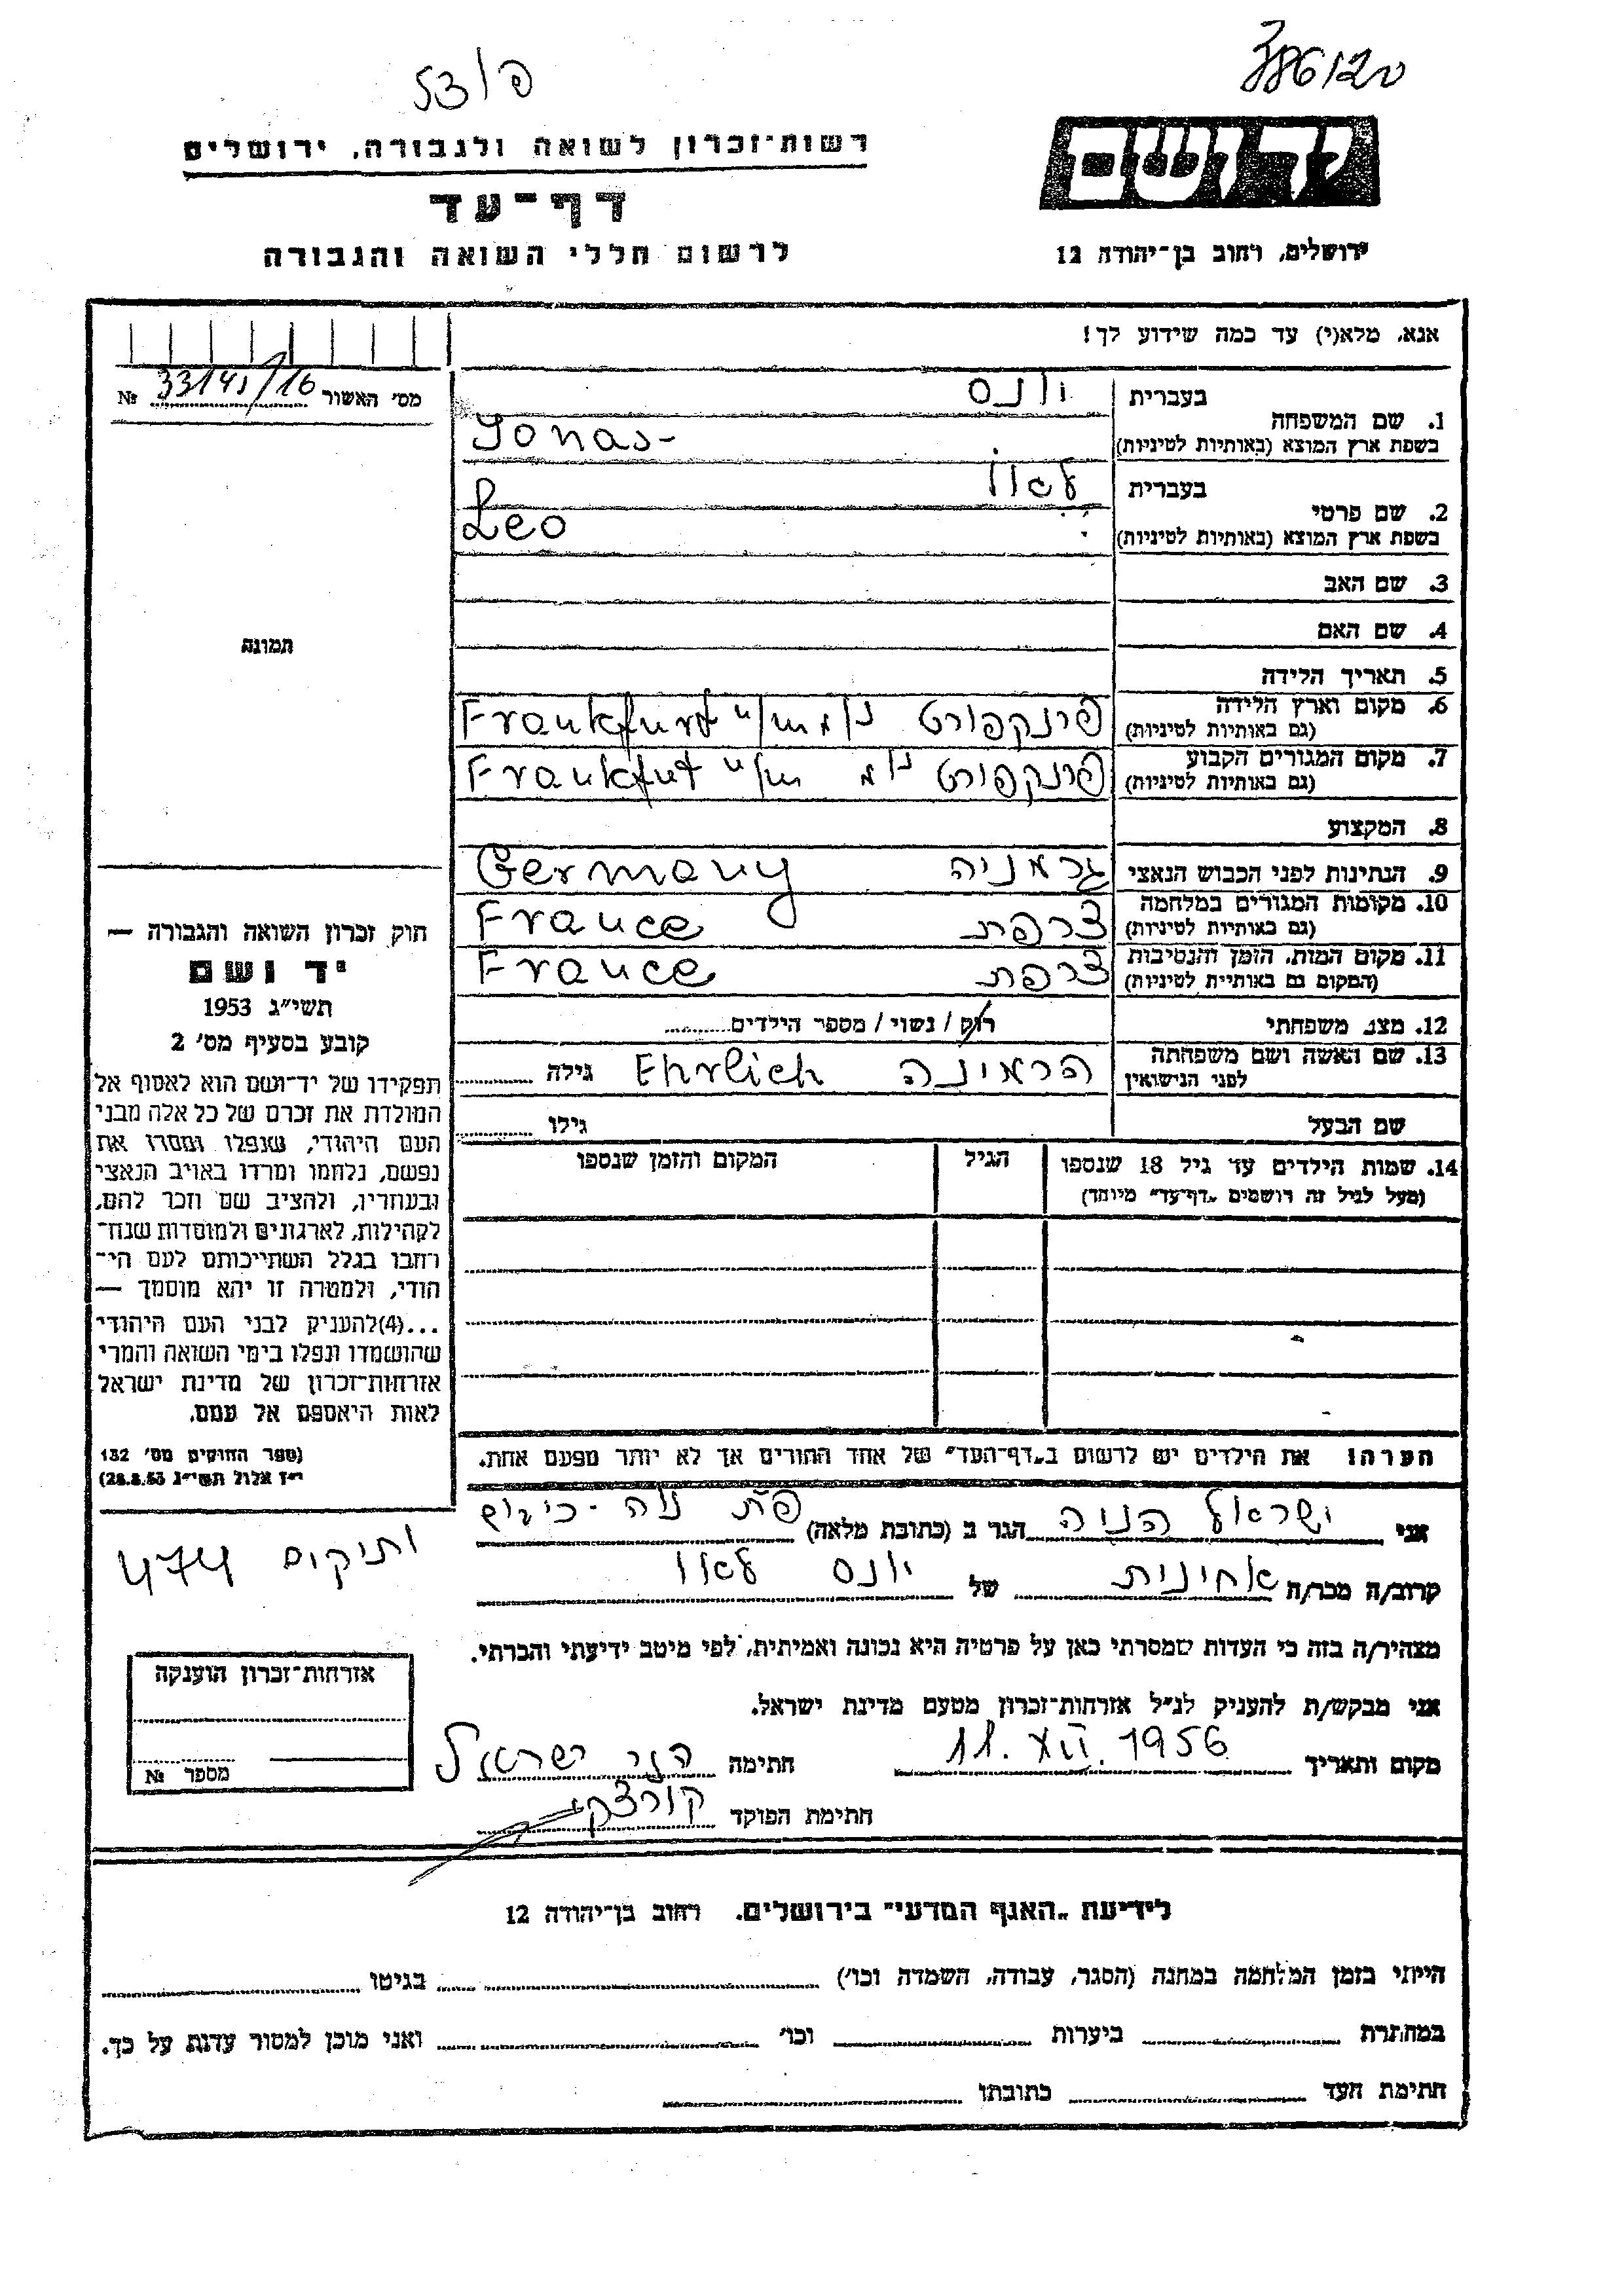 פ/53
386120
רשות־זכרון לשואה ולגבורה, ירושלים
יד ושם
דף־עד
לרשום חללי השואה והגבורה
ירושלים, רחוב בן־יהודה 12
אנא, מלא(י) עד כמה שידוע לך!
מס׳ האשור 33141/16 №
בעברית יונס
1. שם המשפחה
בשפת ארץ המוצא (באותיות לטיניות) Jonas-
בעברית לאו
2. שם פרטי
בשפת ארץ המוצא (באותיות לטיניות) Leo
3. שם האב
4. שם האם
תמונה
5. תאריך הלידה
6. מקום וארץ הלידה פרנקפורט נ/מ Frankfurt
(גם באותיות לטיניות)
7. מקום המגורים הקבוע פרנקפורט נ/מ Frankfut
(גם באותיות לטיניות)
8. המקצוע
9. הנתינות לפני הכבוש הנאצי גרמניה Germany
10. מקומות המגורים במלחמה צרפת France
(גם באותיות לטיניות)
11. מקום המות, הזמן והנסיבות צרפת France
(המקום גם באותיות לטיניות)
12. מצב משפחתי רוק / נשוי / מספר הילדים
13. שם האשה ושם משפחתה הרמינה Ehrlich גילה
לפני הנישואין
שם הבעל גילו
14. שמות הילדים עד גיל 18 שנספו הגיל המקום והזמן שנספו
(מעל לגיל זה רושמים „דף־עד״ מיוחד)
חוק זכרון השואה והגבורה —
יד ושם
תשי״ג 1953
קובע בסעיף מס׳ 2
תפקידו של יד־ושם הוא לאסוף אל
המולדת את זכרם של כל אלה מבני
העם היהודי, שנפלו ומסרו את
נפשם, נלחמו ומרדו באויב הנאצי
ובעוזריו, ולהציב שם וזכר להם,
לקהילות, לארגונים ולמוסדות שנח־
רבו בגלל השתייכותם לעם הי־
הודי, ולמטרה זו יהא מוסמך —
...(4)להעניק לבני העם היהודי
שהושמדו ונפלו בימי השואה והמרי
אזרחות־זכרון של מדינת ישראל
לאות היאספם אל עמם.
(ספר החוקים מס׳ 132
י״ז אלול תשי״ג 28.8.53)
הערה! את הילדים יש לרשום ב„דף־העד״ של אחד ההורים אך לא יותר מפעם אחת.
אני ישראל הניה הגר ב (כתובת מלאה)
קרוב/ה מכר/ה אחינית של יונס לאו
ותיקים 474
מצהיר/ה בזה כי העדות שמסרתי כאן על פרטיה היא נכונה ואמיתית, לפי מיטב ידיעתי והכרתי.
אני מבקש/ת להעניק לנ״ל אזרחות־זכרון מטעם מדינת ישראל.
מקום ותאריך 11. XII. 1956 חתימה הני ישראל
חתימת הפוקד
אזרחות־זכרון הוענקה
מספר №
לידיעת „האגף המדעי״ בירושלים, רחוב בן־יהודה 12
הייתי בזמן המלחמה במחנה (הסגר, עבודה, השמדה וכו׳) בגיטו
במחתרת ביערות וכו׳ ואני מוכן למסור עדות על כך.
חתימת העד כתובתו